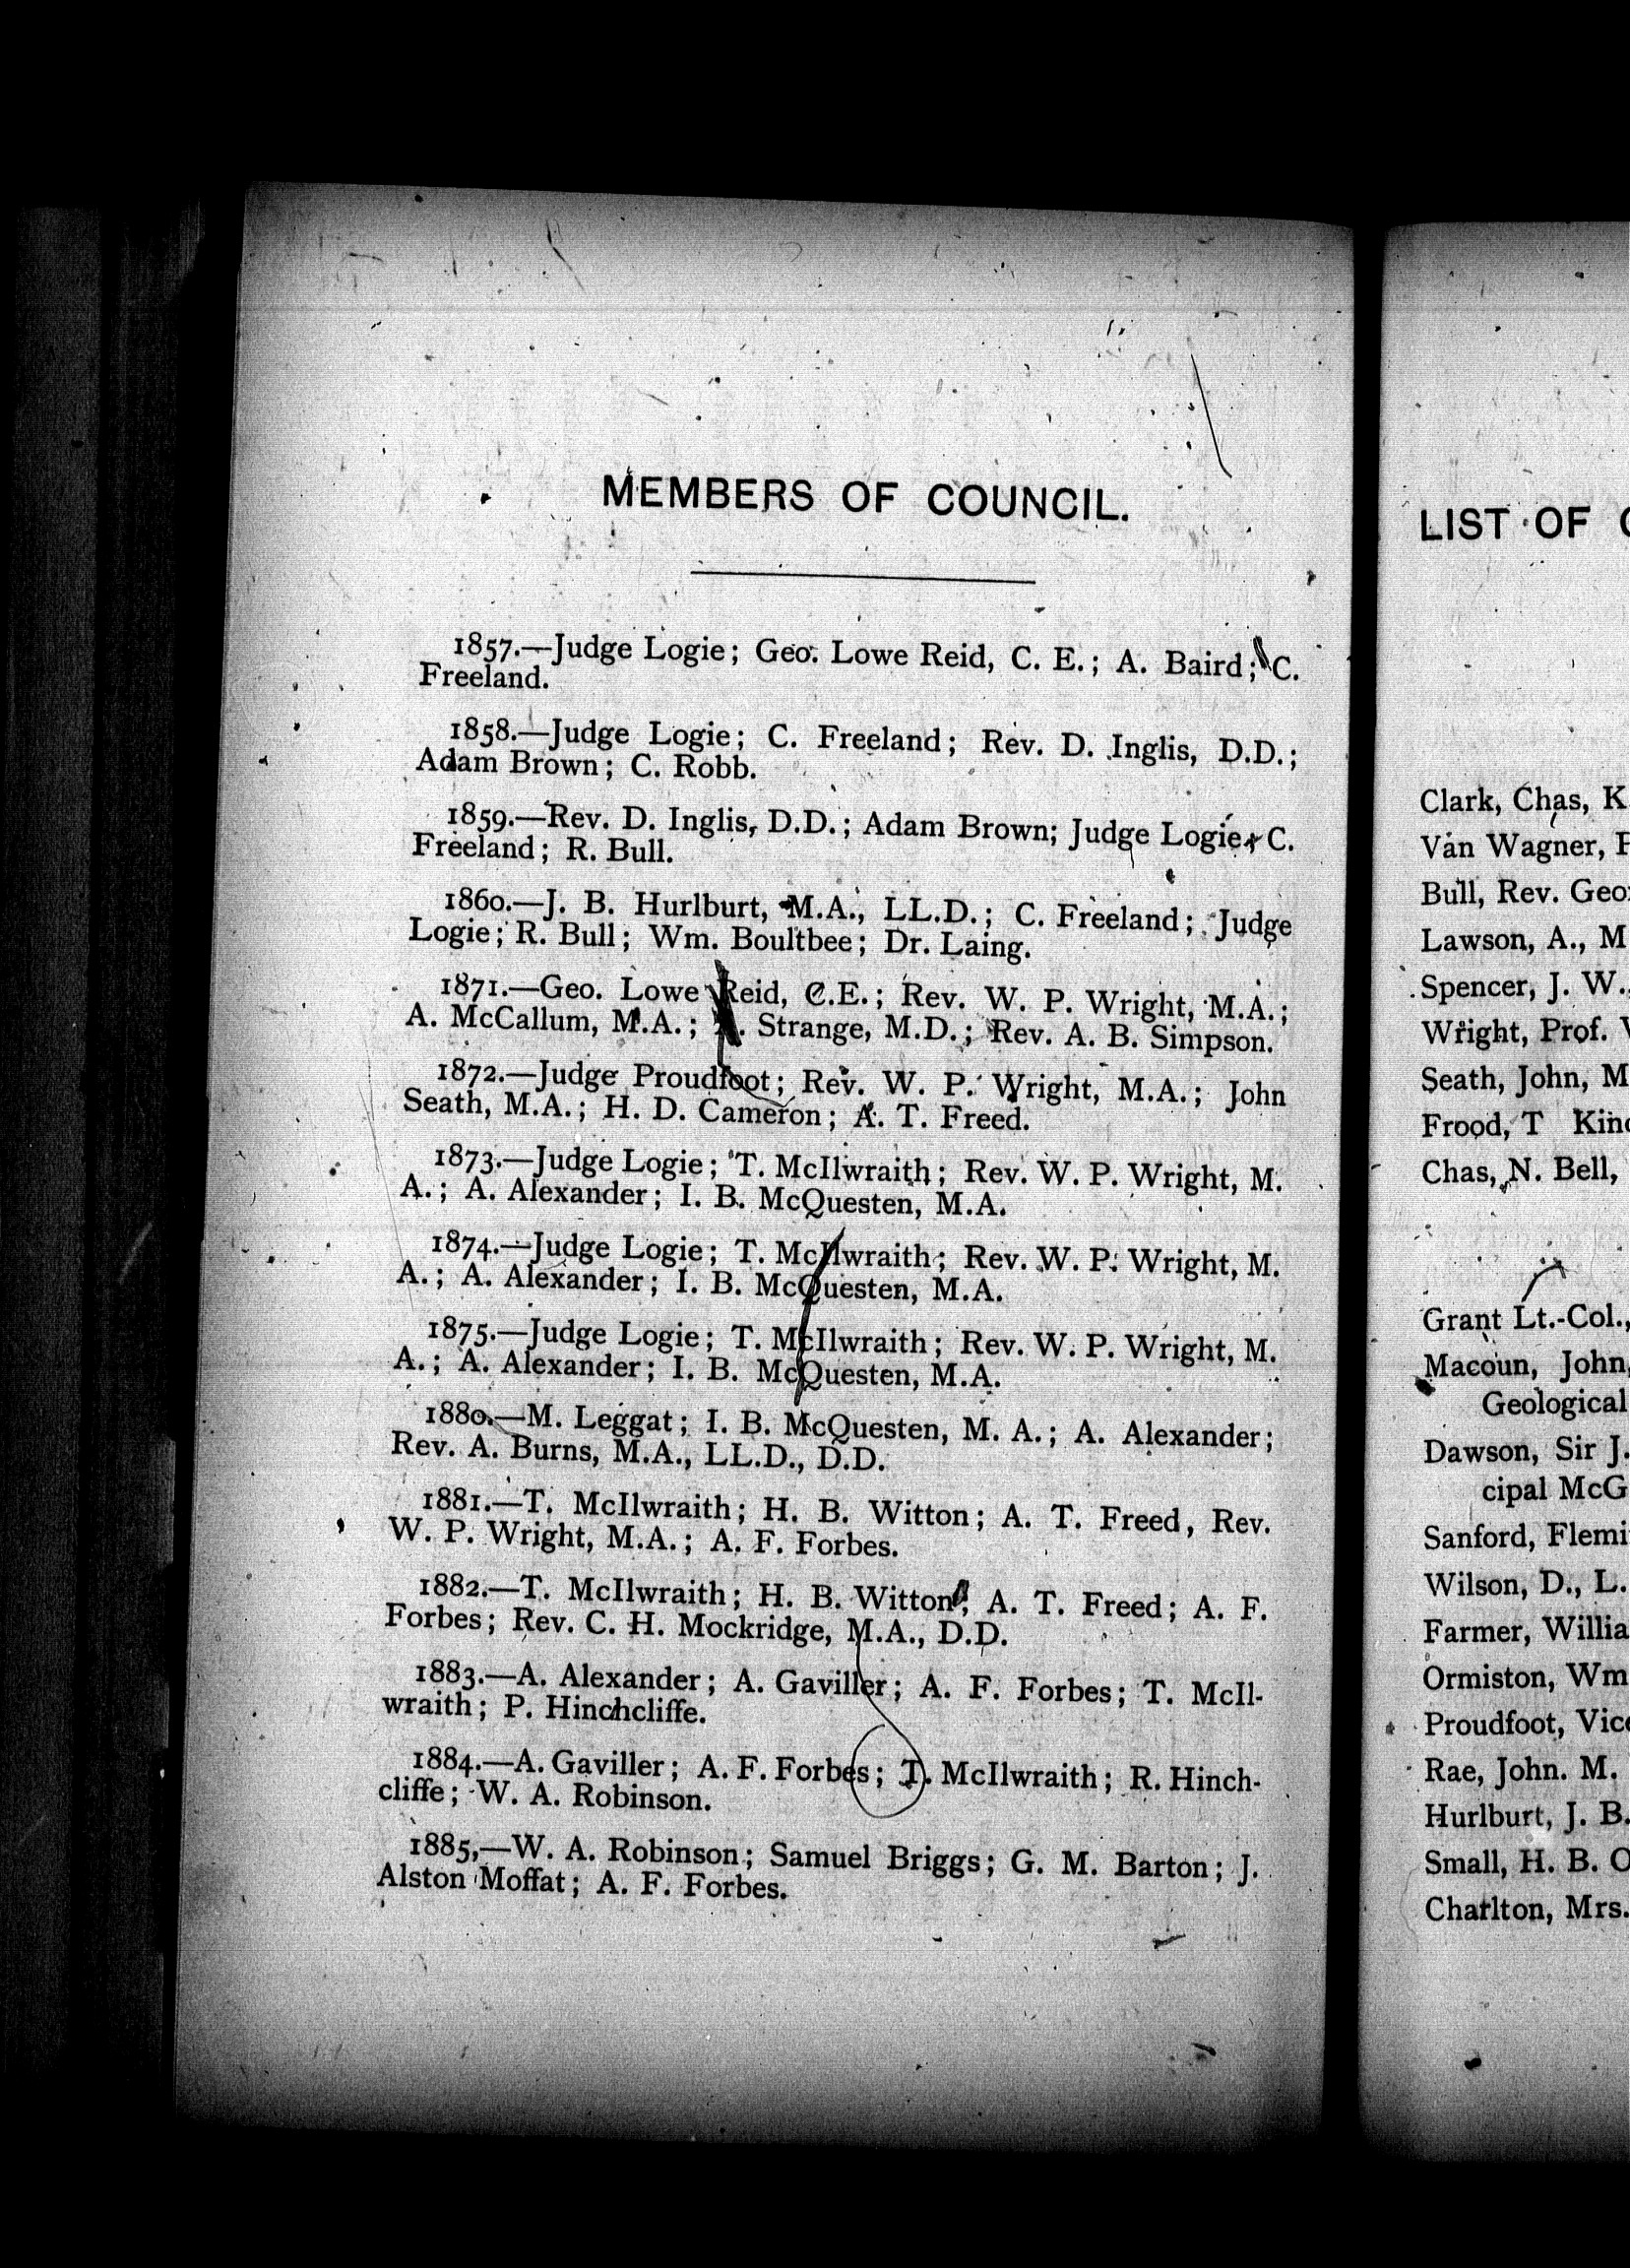 MEMBERS OF COUNCIL.
1857.—Judge Logie; Geo. Lowe Reid, C. E.; A. Baird; C.
Freeland.
1858.—Judge Logie; C. Freeland; Rev. D. Inglis, D.D.;
Adam Brown; C. Robb.
1859.—Rev. D. Inglis, D.D.; Adam Brown; Judge Logie; C.
Freeland; R. Bull.
1860.—J. B. Hurlburt, M.A., LL.D.; C. Freeland; Judge
Logie; R. Bull; Wm. Boultbee; Dr. Laing.
1871.—Geo. Lowe Reid, C.E.; Rev. W. P. Wright, M.A.;
A. McCallum, M.A.; Strange, M.D.; Rev. A. B. Simpson.
1872.—Judge Proudfoot; Rev. W. P. Wright, M.A.; John
Seath, M.A.; H. D. Cameron; A. T. Freed.
1873.—Judge Logie; T. McIlwraith; Rev. W. P. Wright, M.
A.; A. Alexander; I. B. McQuesten, M.A.
1874.—Judge Logie; T. McIlwraith; Rev. W. P. Wright, M.
A.; A. Alexander; I. B. McQuesten, M.A.
1875.—Judge Logie; T. McIlwraith; Rev. W. P. Wright, M.
A.; A. Alexander; I. B. McQuesten, M.A.
1880.—M. Leggat; I. B. McQuesten, M. A.; A. Alexander;
Rev. A. Burns, M.A., LL.D., D.D.
1881.—T. McIlwraith; H. B. Witton; A. T. Freed, Rev.
W. P. Wright, M.A.; A. F. Forbes.
1882.—T. McIlwraith; H. B. Witton; A. T. Freed; A. F.
Forbes; Rev. C. H. Mockridge, M.A., D.D.
1883.—A. Alexander; A. Gaviller; A. F. Forbes; T. McIl-
wraith; P. Hinchcliffe.
1884.—A. Gaviller; A. F. Forbes; T. McIlwraith; R. Hinch-
cliffe; W. A. Robinson.
1885,—W. A. Robinson; Samuel Briggs; G. M. Barton; J.
Alston Moffat; A. F. Forbes.
LIST OF
Clark, Chas, K
Van Wagner, P
Bull, Rev. Geo
Lawson, A., M
Spencer, J. W.,
Wright, Prof.
Seath, John, M
Frood, T Kin
Chas, N. Bell,
Grant Lt.-Col.,
Macoun, John,
Geological
Dawson, Sir J.
cipal McG
Sanford, Flemi
Wilson, D., L.
Farmer, Willia
Ormiston, Wm
Proudfoot, Vic
Rae, John. M.
Hurlburt, J. B.
Small, H. B. O
Charlton, Mrs.